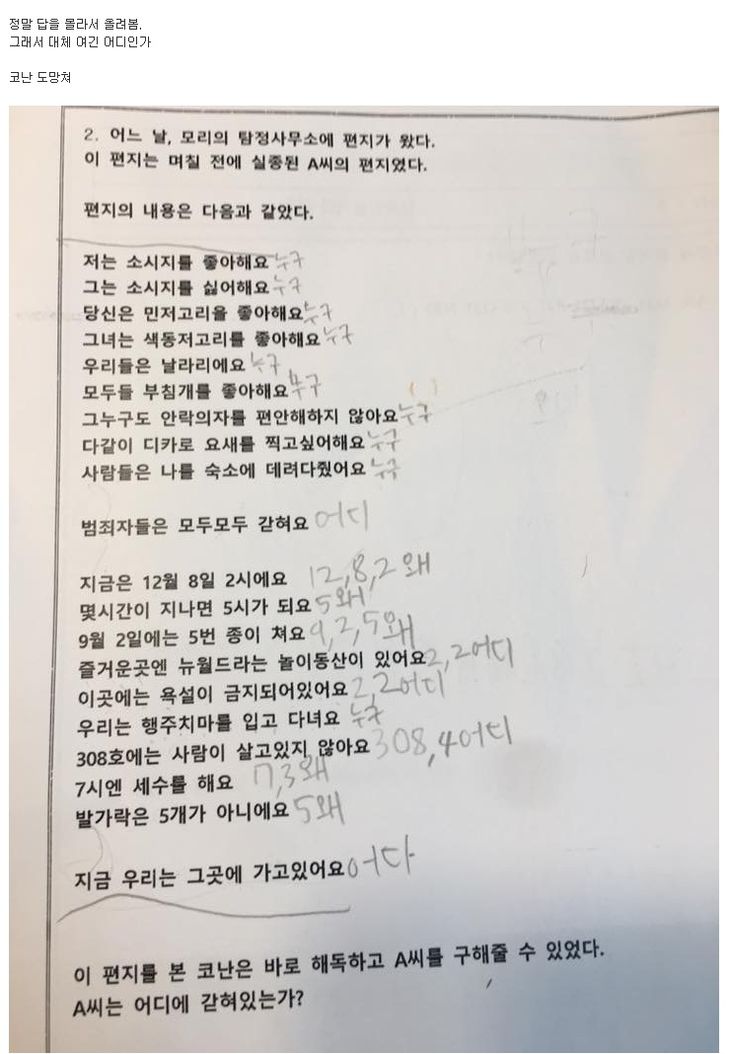 정말 답을 몰라서 올려봄.
그래서 대체 여긴 어디인가
코난 도망쳐
2. 어느 날, 모리의 탐정사무소에 편지가 왔다.
이 편지는 며칠 전에 실종된 A씨의 편지였다.
편지의 내용은 다음과 같았다.
저는 소시지를 좋아해요 누구
그는 소시지를 싫어해요 누구
당신은 민저고리을 좋아해요 누구
그녀는 색동저고리를 좋아해요 누구
우리들은 날라리에요 누구
모두들 부침개를 좋아해요 누구
그누구도 안락의자를 편안해하지 않아요 누구
다같이 디카로 요새를 찍고싶어해요 누구
사람들은 나를 숙소에 데려다줬어요 누구
범죄자들은 모두모두 갇혀요 어디
지금은 12월 8일 2시에요 12,8,2 왜
몇시간이 지나면 5시가 되요 5 왜
9월 2일에는 5번 종이 쳐요 9,2,5 왜
즐거운곳엔 뉴월드라는 놀이동산이 있어요 2,2 어디
이곳에는 욕설이 금지되어있어요 2,2 어디
우리는 행주치마를 입고 다녀요 누구
308호에는 사람이 살고있지 않아요 308,4 어디
7시엔 세수를 해요 7,3 왜
발가락은 5개가 아니에요 5 왜
지금 우리는 그곳에 가고있어요 어다
이 편지를 본 코난은 바로 해독하고 A씨를 구해줄 수 있었다.
A씨는 어디에 갇혀있는가?